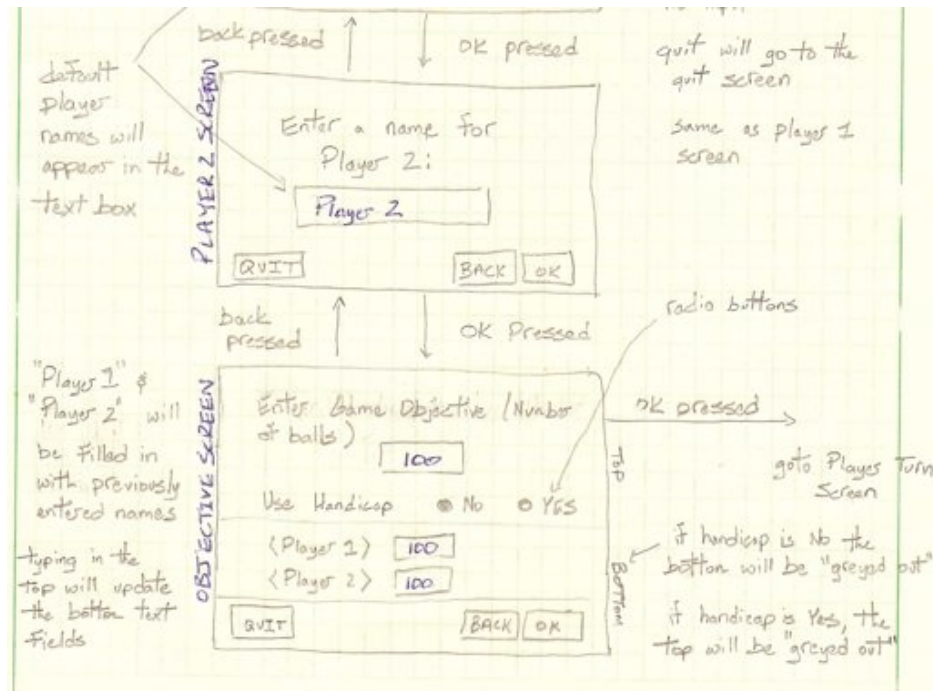 back pressed
OK pressed
quit will go to the
quit screen
same as player 1
screen
default
player
names will
appear in the
text box
PLAYER 2 SCREEN
Enter a name for
Player 2:
Player 2
QUIT
BACK
OK
back
pressed
OK Pressed
radio buttons
"Player 1" &
"Player 2" will
be filled in
with previously
entered names
typing in the
top will update
the bottom text
fields
OBJECTIVE SCREEN
Enter Game Objective (Number
of balls)
100
Use Handicap
No
YES
<Player 1>
100
<Player 2>
100
QUIT
BACK
OK
TOP
BOTTOM
OK pressed
goto Player Turn
Screen
if handicap is No the
bottom will be "greyed out"
if handicap is Yes, the
top will be "greyed out"